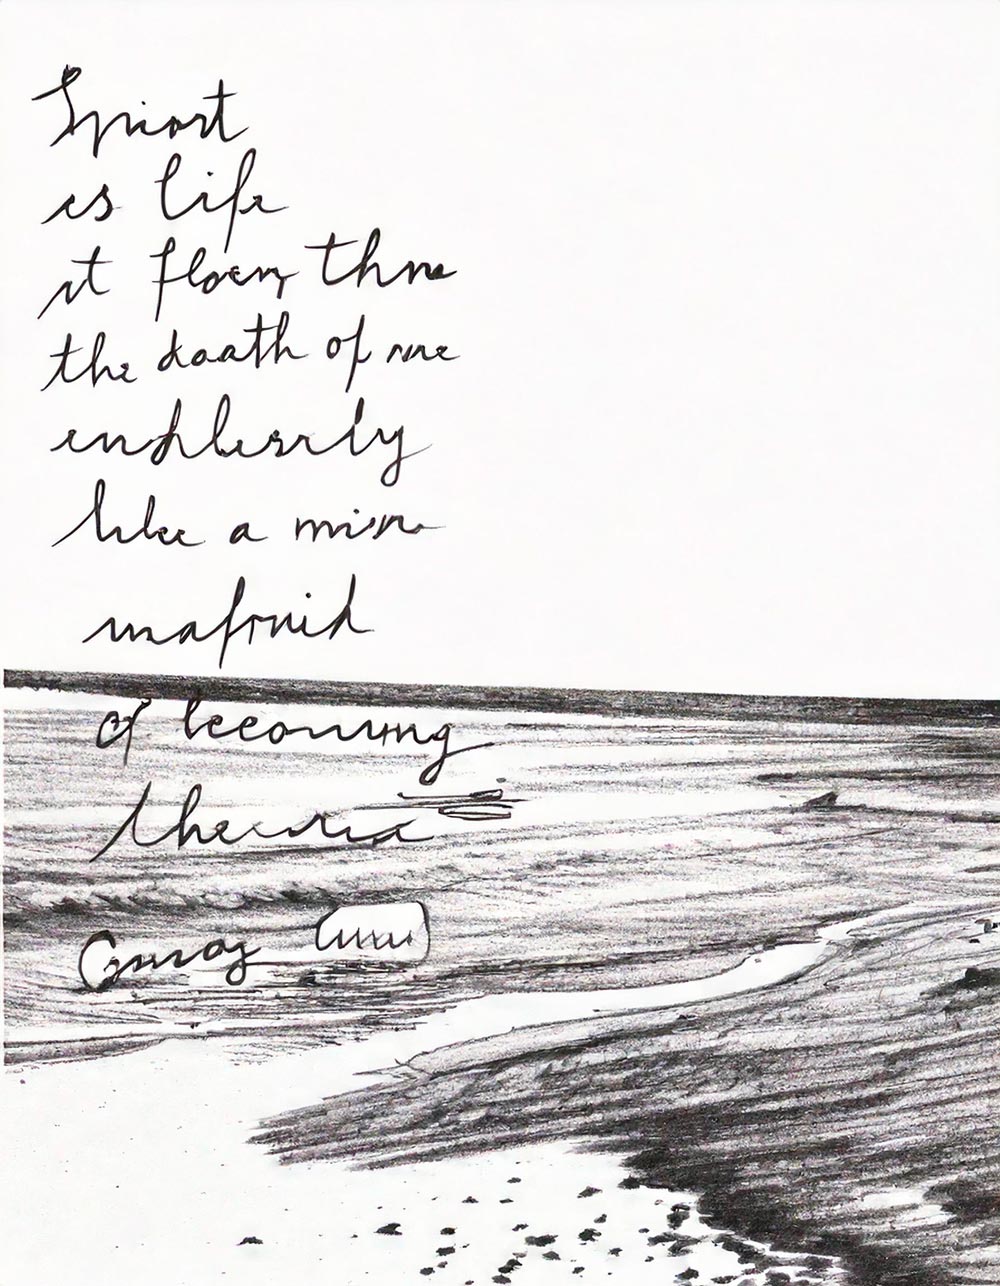 Spiort
is life
it floen thro
the death of me
endlessly
like a misn
unafraid
of becoming
the